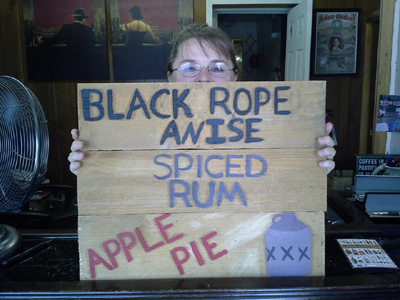 BLACK ROPE
ANISE
SPICED
RUM
APPLE
PIE
XXX
COFFEE IN